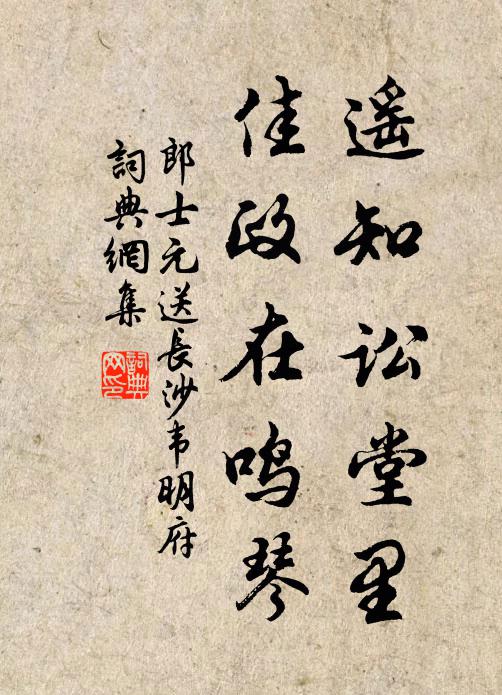 遥知讼堂里
佳政在鸣琴
郎士元送長沙韦明府
詞典網集
詞典网印